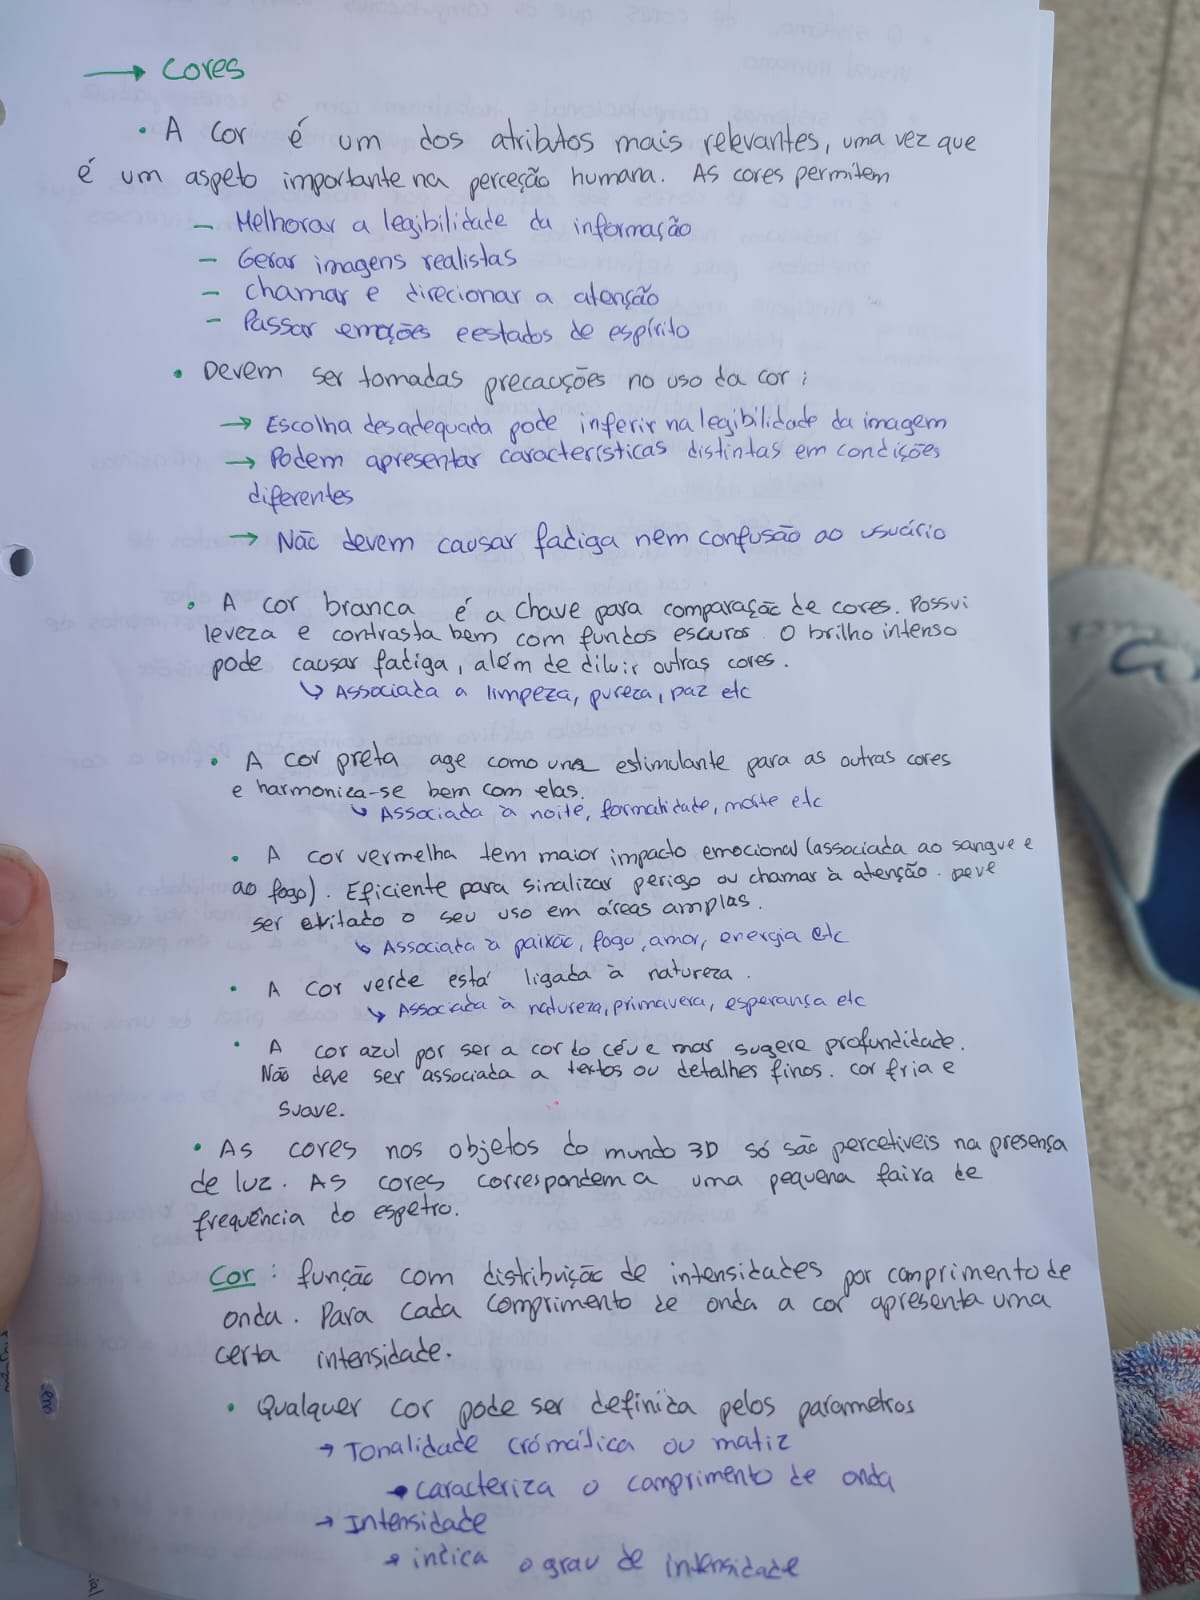 → Cores
• A cor é um dos atributos mais relevantes, uma vez que
é um aspeto importante na perceção humana. As cores permitem
- Melhorar a legibilidade da informação
- Gerar imagens realistas
- chamar e direcionar a atenção
- Passar emoções e estados de espírito
• Devem ser tomadas precauções no uso da cor:
→ Escolha desadequada pode inferir na legibilidade da imagem
→ Podem apresentar características distintas em condições
diferentes
→ Não devem causar fadiga nem confusão ao usuário
• A cor branca é a chave para comparação de cores. Possui
leveza e contrasta bem com fundos escuros. O brilho intenso
pode causar fadiga, além de diluir outras cores.
↳ Associada a limpeza, pureza, paz etc
• A cor preta age como una estimulante para as outras cores
e harmoniza-se bem com elas.
↳ Associada à noite, formalidade, morte etc
• A cor vermelha tem maior impacto emocional (associada ao sangue e
ao fogo). Eficiente para sinalizar perigo ou chamar à atenção. Deve
ser evitado o seu uso em áreas amplas.
↳ Associada à paixão, fogo, amor, energia etc
• A cor verde está ligada à natureza.
↳ Associada à natureza, primavera, esperança etc
• A cor azul por ser a cor do céu e mar sugere profundidade.
Não deve ser associada a textos ou detalhes finos. cor fria e
suave.
• As cores nos objetos do mundo 3D só são percetiveis na presença
de luz. As cores correspondem a uma pequena faixa de
frequência do espetro.
Cor: função com distribuição de intensidades por comprimento de
onda. Para cada comprimento de onda a cor apresenta uma
certa intensidade.
• Qualquer cor pode ser definida pelos parametros
→ Tonalidade crómática ou matiz
→ caracteriza o comprimento de onda
→ Intensidade
→ indica o grau de intensidade